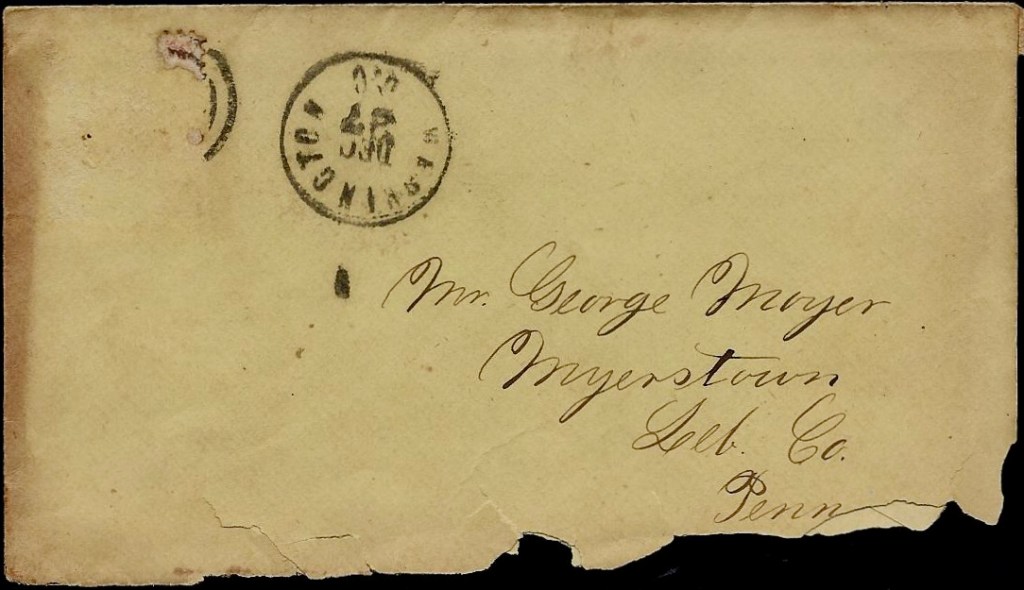 WASHINGTON
DEC
D.C.
Mr. George Moyer
Myerstown
Leb. Co.
Penn